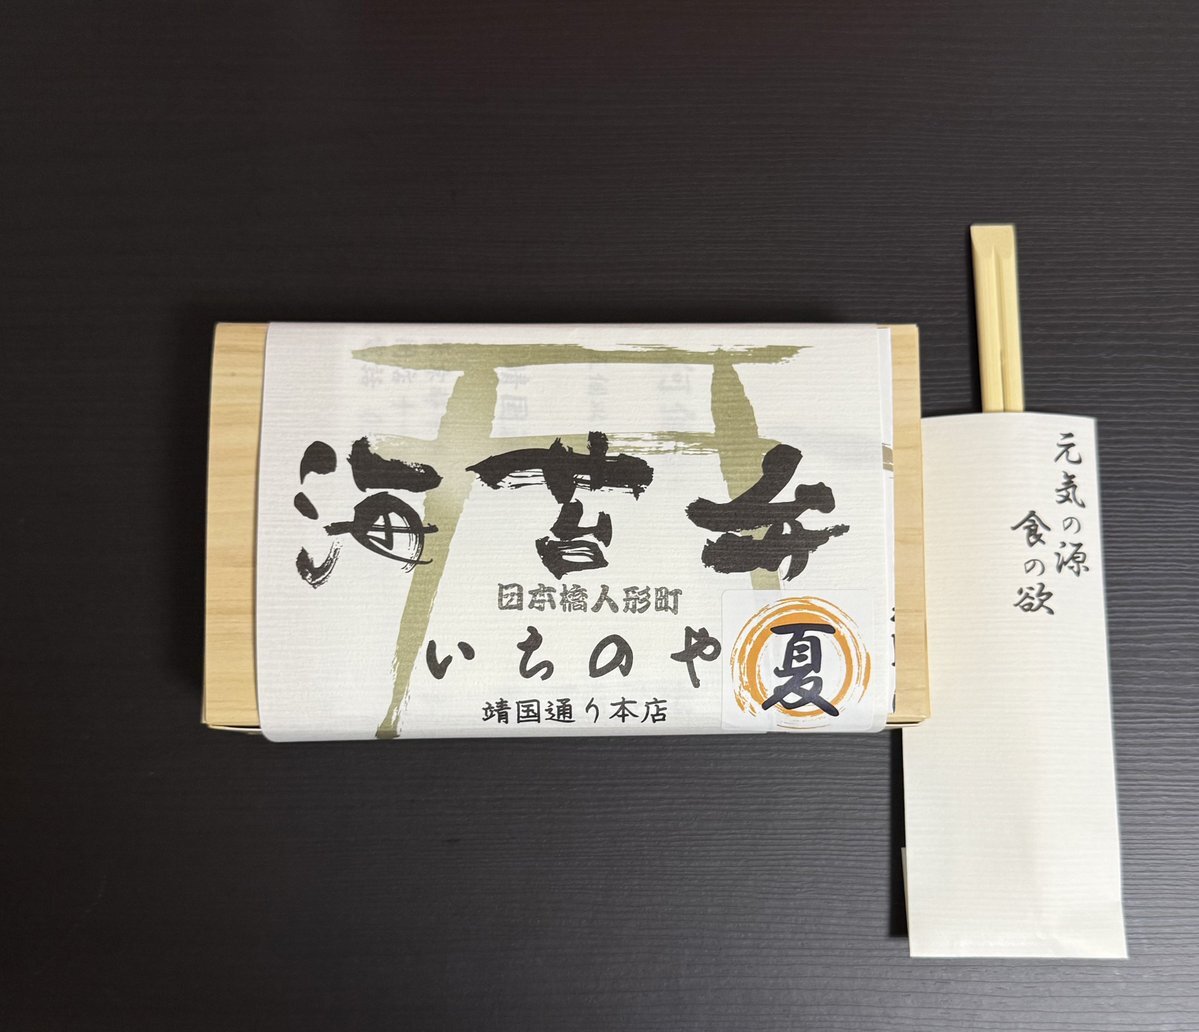 海苔弁
日本橋人形町
いちのや
靖国通り本店
夏
元気の源
食の欲